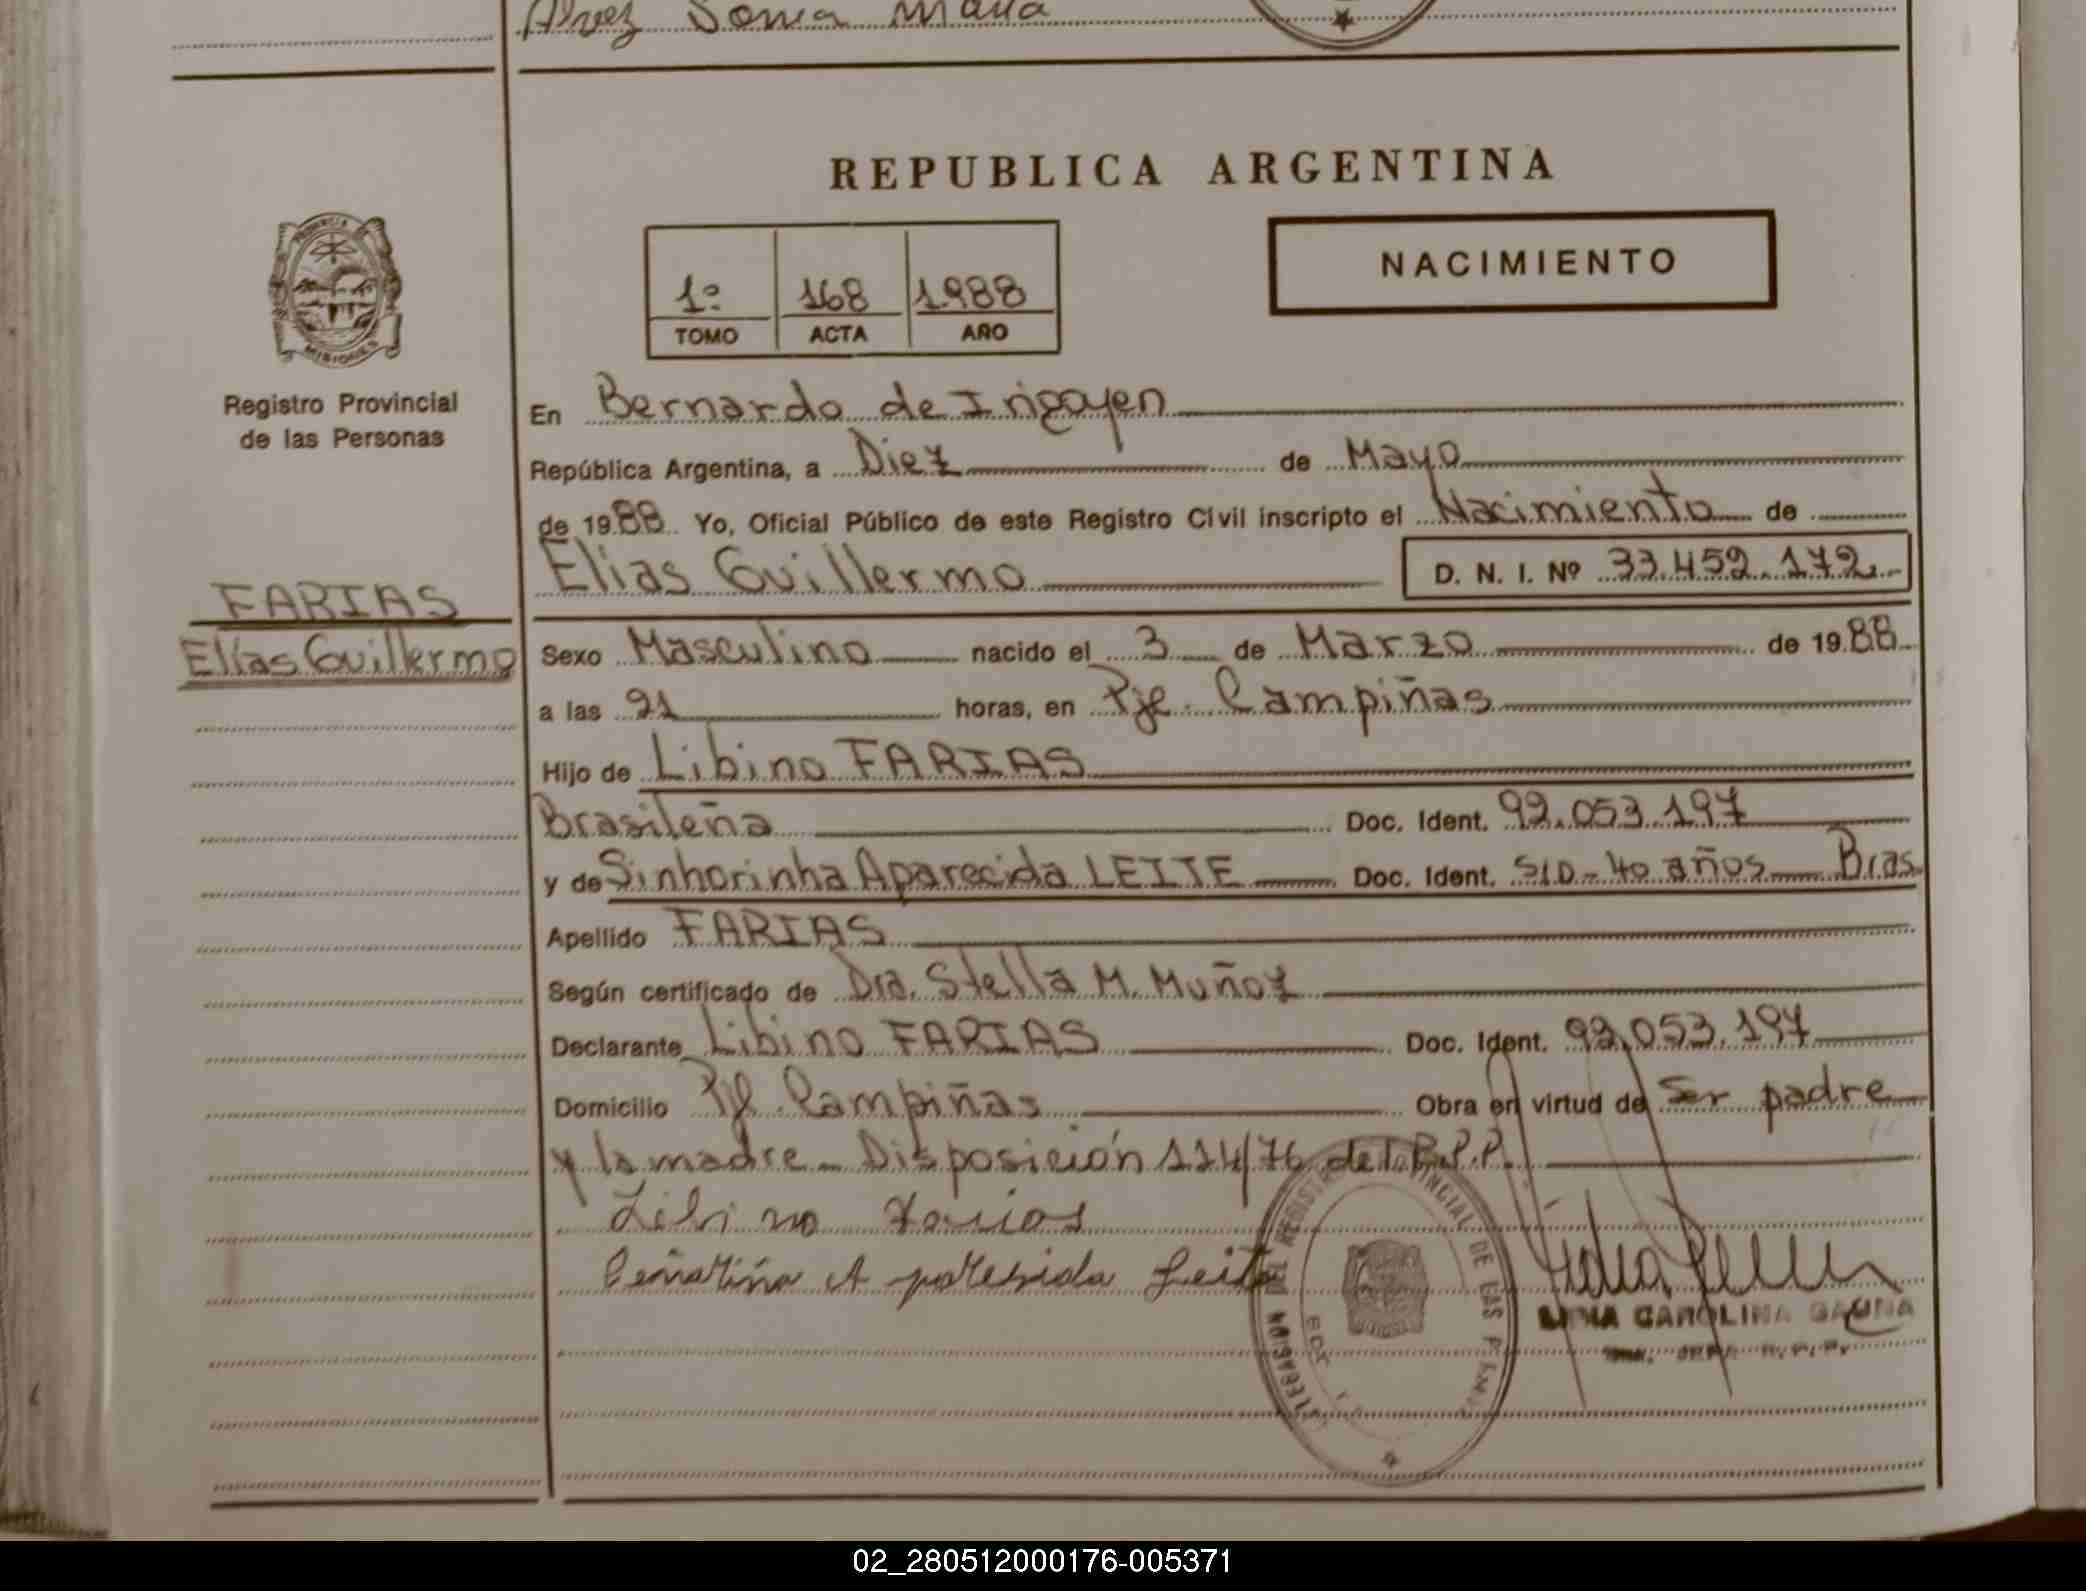 Alvez Sonia Maria
REPUBLICA ARGENTINA
NACIMIENTO
1º 168 1988
TOMO ACTA AÑO
PROVINCIA DE MISIONES
Registro Provincial
de las Personas
En Bernardo de Irigoyen
República Argentina, a Diez de Mayo
de 1988 Yo, Oficial Público de este Registro Civil inscripto el Nacimiento de
Elias Guillermo D. N. I. Nº 33.459.172
FARIAS
Elías Guillermo
Sexo Masculino nacido el 3 de Marzo de 1988
a las 21 horas, en Pje. Campiñas
Hijo de Libino FARIAS
Brasileña Doc. Ident. 92.053.197
y de Sinhorinha Aparecida LEITE Doc. Ident. S/D - 40 años Bras.
Apellido FARIAS
Según certificado de Dra. Stella M. Muñoz
Declarante Libino FARIAS Doc. Ident. 92.053.197
Domicilio Pje. Campiñas Obra en virtud de Ser padre
y la madre - Disposición 114/76 del R.P.P.
Libino Farias
Leite
DEL REGISTRO PROVINCIAL DE LAS
CAROLINA
R.P.P.
02_280512000176-005371